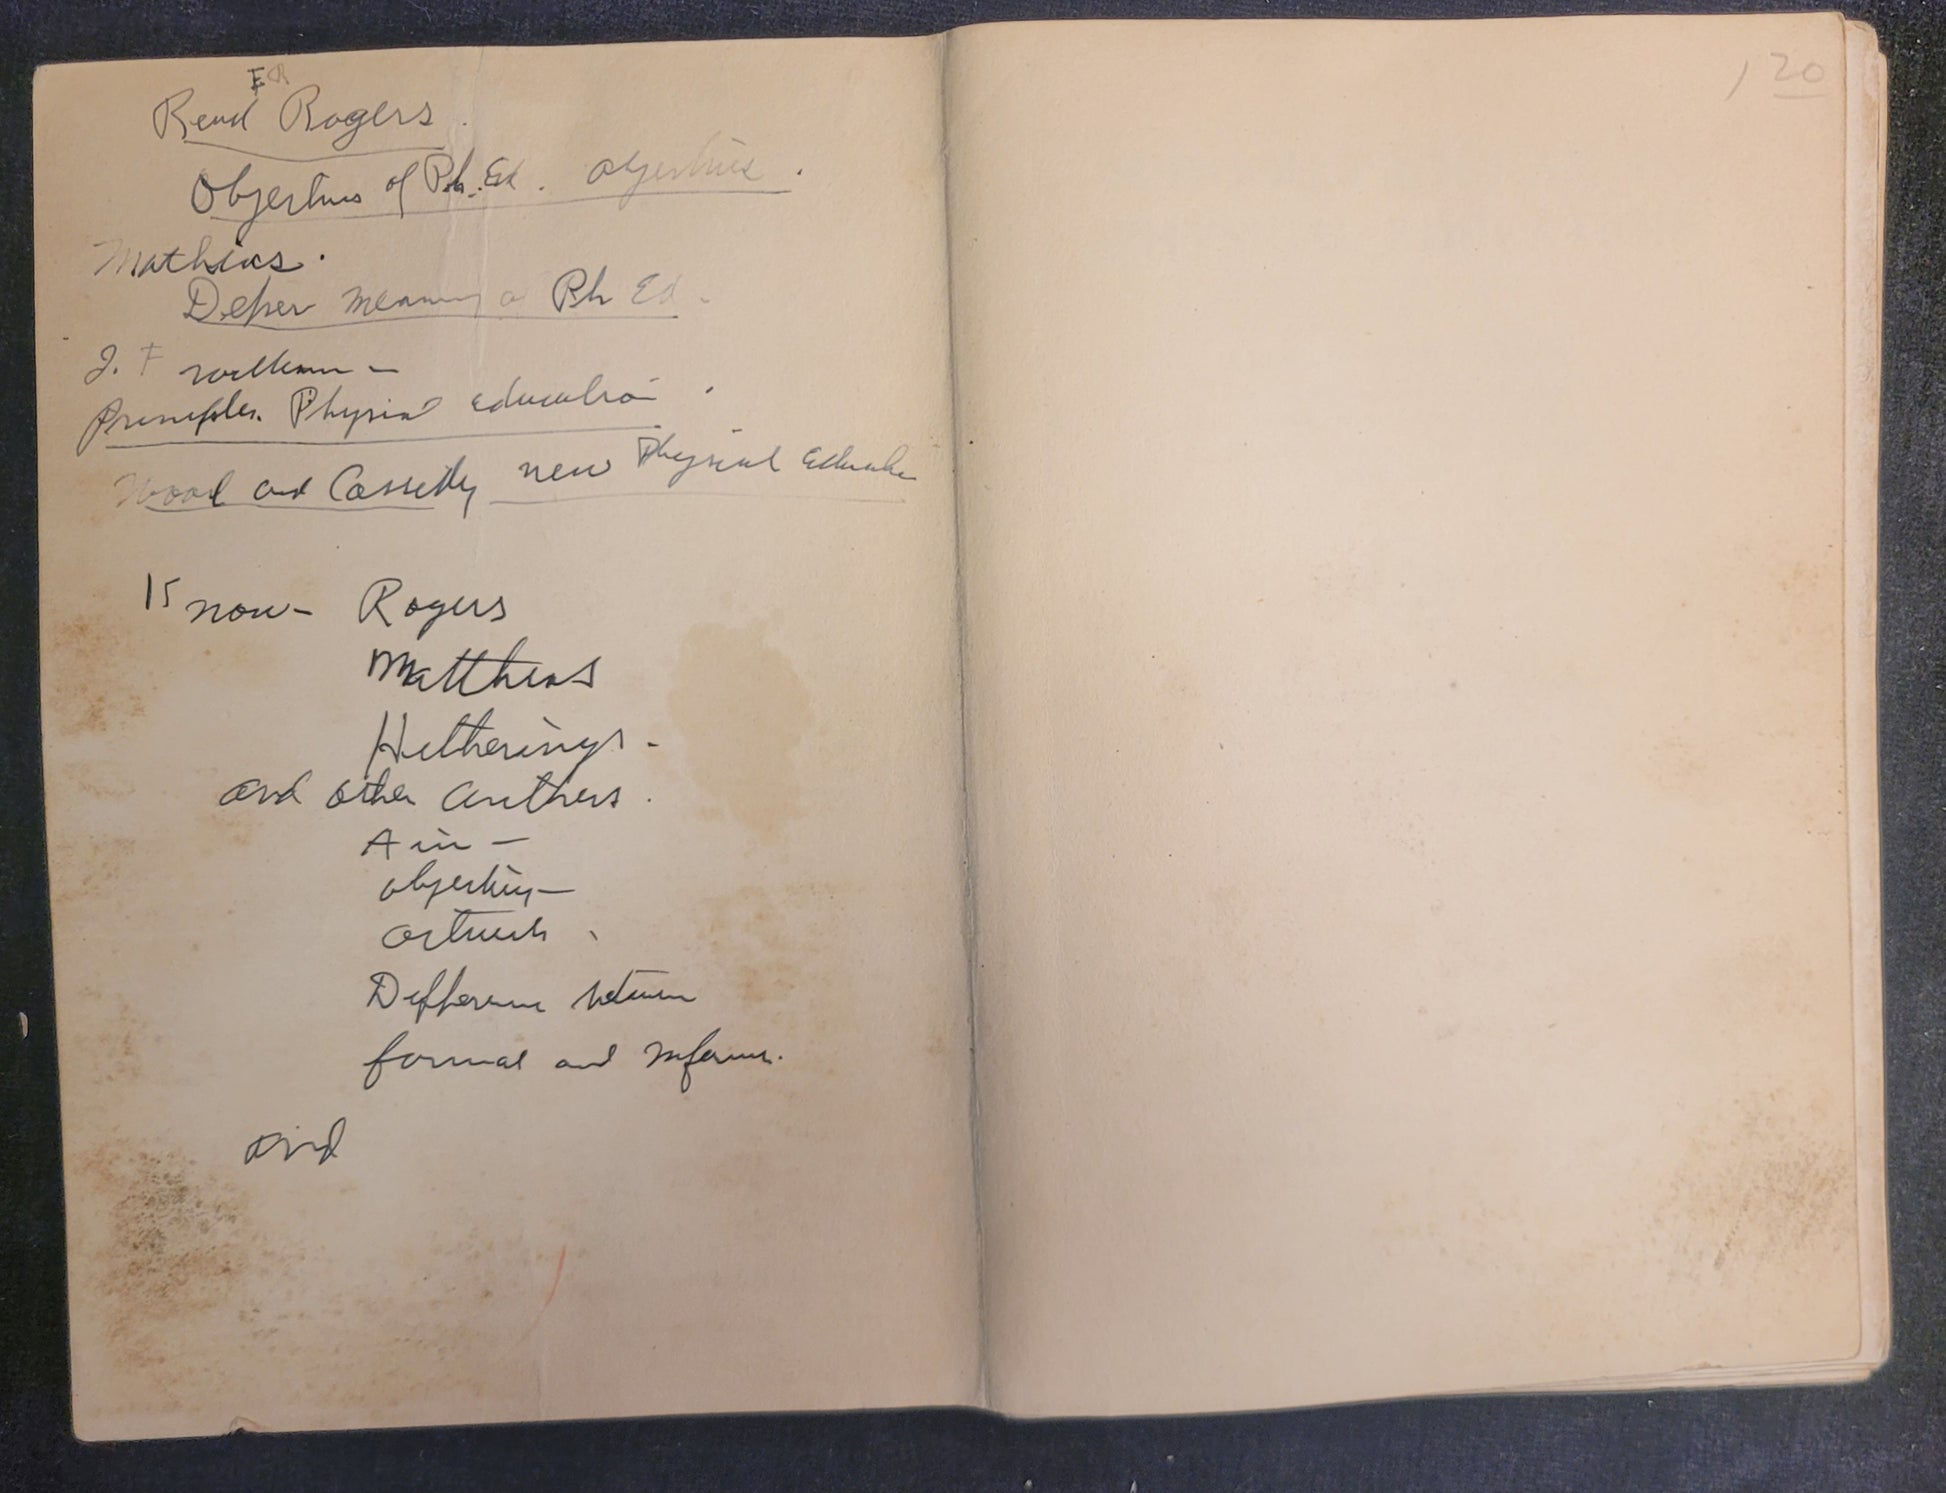 ER
Read Rogers.
Objectives of Ph. Ed. objectives.
Mathias.
Deper meaning o Ph Ed.
J. F Williams -
Principles. Physical education.
Wood and Cassidy new Physical Education
15 now- Rogers
Matthias
Hetherings.
and other authors.
Aim -
objectives -
Difference between
formal and informal.
and
120